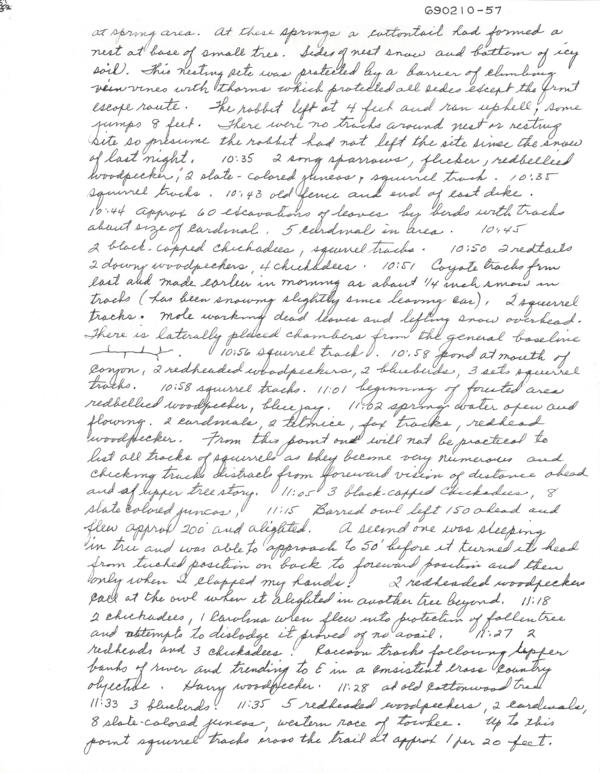 G90210-57
at spring area. At these springs a cottontail had formed a
nest at base of small tree. Sides of nest snow and bottom of icy
soil. This nesting site was protected by a barrier of climbing
vines with thorns which protected all sides except the front
escape route. The rabbit left at 4 feet and ran uphill, some
jumps 8 feet. There were no tracks around nest or resting
site so presume the rabbit had not left the site since the snow
of last night. 10:35 2 song sparrows, flicker, redbellied
woodpecker, 2 slate-colored juncos, squirrel track. 10:35
squirrel tracks. 10:43 old fence and end of east dike.
10:44 approx 60 excavations of leaves by birds with tracks
about size of cardinal. 5 cardinal in area. 10:45
2 black-capped chickadees, squirrel tracks. 10:50 2 redtails
2 downy woodpeckers, 4 chickadees. 10:51 Coyote tracks from
east and made earlier in morning as about 1/4 inch snow in
tracks (has been snowing slightly since leaving car), 2 squirrel
tracks. Mole working dead leaves and lifting snow overhead.
There is laterally placed chambers from the general baseline
10:56 squirrel track. 10:58 pond at mouth of
canyon, 2 redheaded woodpeckers, 2 bluebirds, 3 sets squirrel
tracks. 10:58 squirrel tracks. 11:01 beginning of forested area
redbellied woodpecker, blue jay. 11:02 spring water open and
flowing. 2 cardinals, 2 titmice, fox tracks, redhead
woodpecker. From this point one will not be practical to
list all tracks of squirrels as they become very numerous and
checking tracks distracts from foreward vision of distance ahead
and of upper tree story. 11:05 3 black-capped chickadees, 8
slate colored juncos, 11:15 Barred owl left 150 ahead and
flew approx 200' and alighted. A second one was sleeping
in tree and was able to approach to 50' before it turned its head
from tucked position on back to foreward position and then
only when I clapped my hands! 2 redheaded woodpeckers
call at the owl when it alighted in another tree beyond. 11:18
2 chickadees, 1 Carolina wren flew into protection of fallen tree
and attempts to dislodge it proved of no avail. 11:27 2
redheads and 3 chickadees. Raccoon tracks following upper
banks of river and trending to E in a consistent cross country
objective. Hairy woodpecker. 11:28 at old cottonwood tree
11:33 3 bluebirds. 11:35 5 redheaded woodpeckers, 2 cardinals,
8 slate-colored juncos, western race of towhee. Up to this
point squirrel tracks cross the trail at approx 1 per 20 feet.